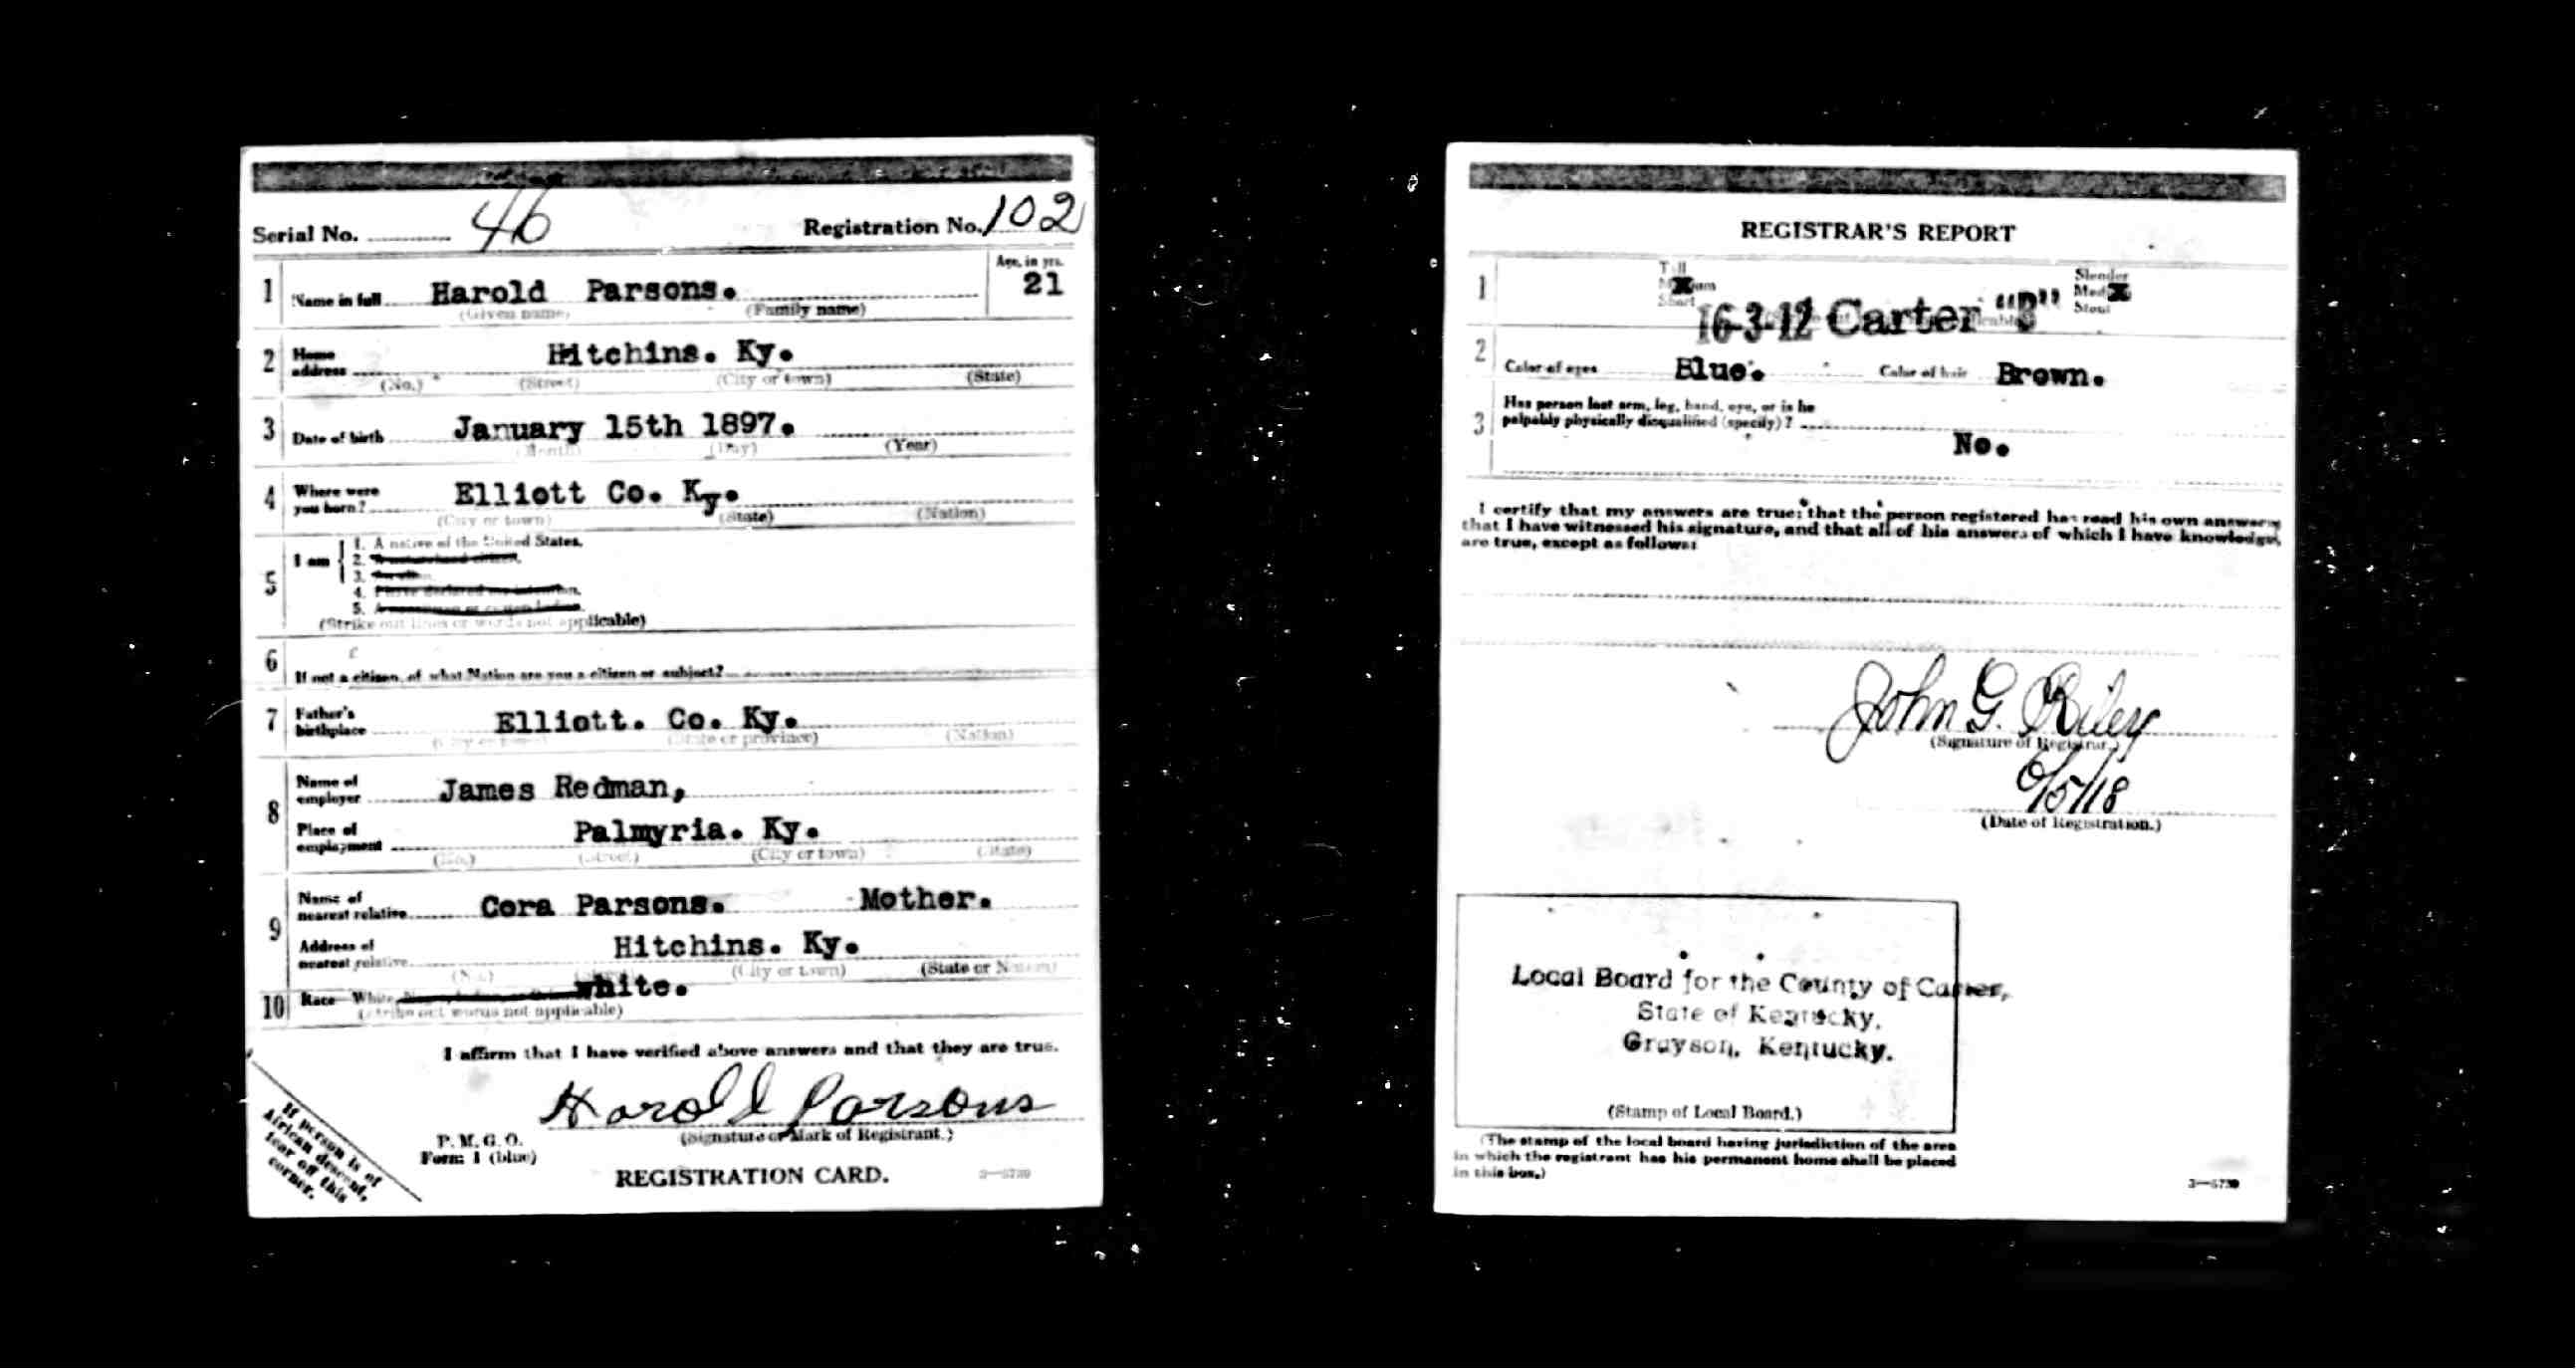 Serial No. 46 Registration No. 102
1 Name in full Harold Parsons. Age, in yrs. 21
(Given name) (Family name)
2 Home address Hitchins. Ky.
(No.) (Street) (City or town) (State)
3 Date of birth January 15th 1897.
(Month) (Day) (Year)
4 Where were you born? Elliott Co. Ky.
(City or town) (State) (Nation)
5 I am 1. A native of the United States.
2.
3.
4.
5.
(Strike out lines or words not applicable)
6 If not a citizen, of what Nation are you a citizen or subject?
7 Father's birthplace Elliott. Co. Ky.
(City or town) (State or province) (Nation)
8 Name of employer James Redman,
Place of employment Palmyria. Ky.
(No.) (Street) (City or town) (State)
9 Name of nearest relative Cora Parsons. Mother.
Address of nearest relative Hitchins. Ky.
(No.) (Street) (City or town) (State or Nation)
10 Race White, white.
(Strike out words not applicable)
I affirm that I have verified above answers and that they are true.
Harold Parsons
(Signature or Mark of Registrant.)
P. M. G. O.
Form 1 (blue)
REGISTRATION CARD.
3—5739
If person is of
African descent,
tear off this
corner.
REGISTRAR'S REPORT
1 Tall Slender
Medium
Short Stout
16-3-12 Carter
2 Color of eyes Blue. Color of hair Brown.
3 Has person lost arm, leg, hand, eye, or is he
palpably physically disqualified (specify)?
No.
I certify that my answers are true; that the person registered has read his own answers,
that I have witnessed his signature, and that all of his answers of which I have knowledge,
are true, except as follows:
John G. Riley
(Signature of Registrar.)
6/5/18
(Date of Registration.)
Local Board for the County of Carter,
State of Kentucky,
Grayson, Kentucky.
(Stamp of Local Board.)
(The stamp of the local board having jurisdiction of the area
in which the registrant has his permanent home shall be placed
in this box.)
3—5739